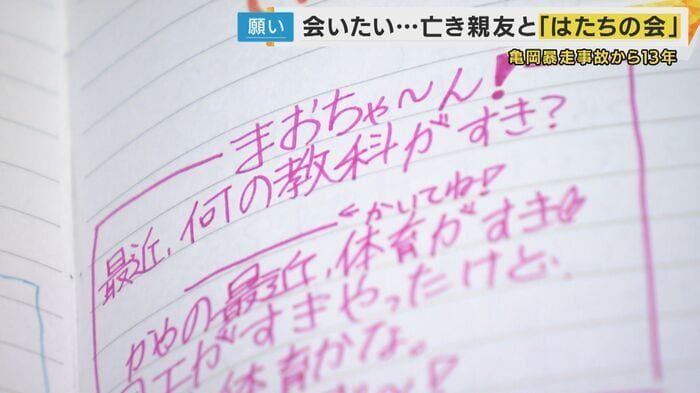 願い 会いたい…亡き親友と「はたちの会」
亀岡暴走事故から13年
まおちゃ〜ん!
最近、何の教科がすき?
←かいてね!
かやの最近、体育がすき
工がすきやったけど、
体育かな。